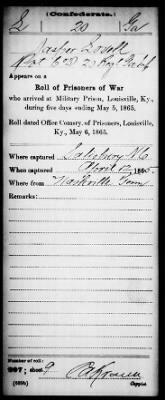 (Confederate.)
L 20 Ga
Jasper Lovell
Pvt Co D 20 Regt Ga Inf
Appears on a
Roll of Prisoners of War
who arrived at Military Prison, Louisville, Ky.,
during five days ending May 5, 1865.
Roll dated Office Comsy. of Prisoners, Louisville,
Ky., May 6, 1865.
Where captured Salisbury N.C.
When captured April 12, 186
Where from Nashville Tenn
Remarks:
Number of roll:
297; sheet 9
Copyist